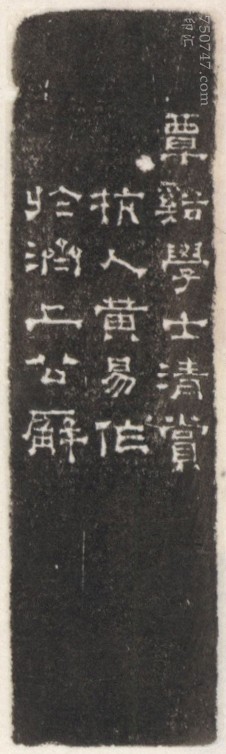 覃谿學士清賞
杭人黃易作
於泲上公廨
750747.com